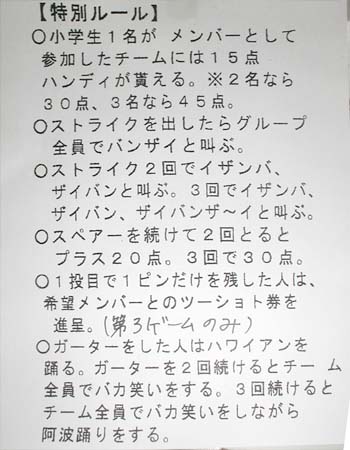 【特別ルール】
○小学生1名が メンバーとして
参加したチームには15点
ハンディが貰える。※2名なら
30点、3名なら45点。
○ストライクを出したらグループ
全員でバンザイと叫ぶ。
○ストライク2回でイザンバ、
ザイバンと叫ぶ。3回でイザンバ、
ザイバン、ザイバンザ～イと叫ぶ。
○スペアーを続けて2回とると
プラス20点。3回で30点。
○1投目で1ピンだけを残した人は、
希望メンバーとのツーショト券を
進呈。(第3ゲームのみ)
○ガーターをした人はハワイアンを
踊る。ガーターを2回続けるとチーム
全員でバカ笑いをする。3回続けると
チーム全員でバカ笑いをしながら
阿波踊りをする。